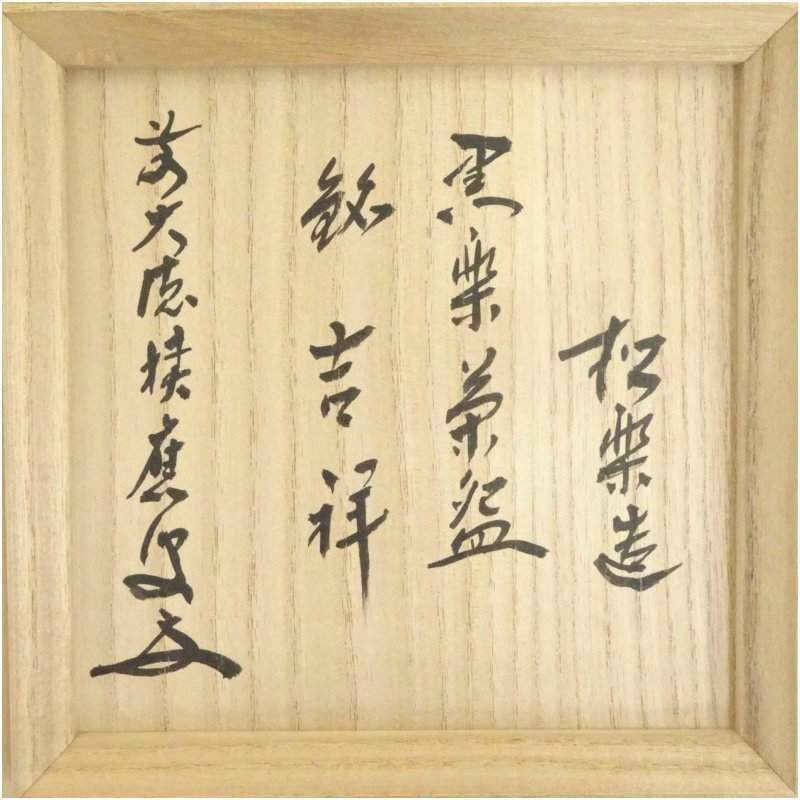 松楽造
黒楽茶盌
銘 吉祥
前大徳積應叟